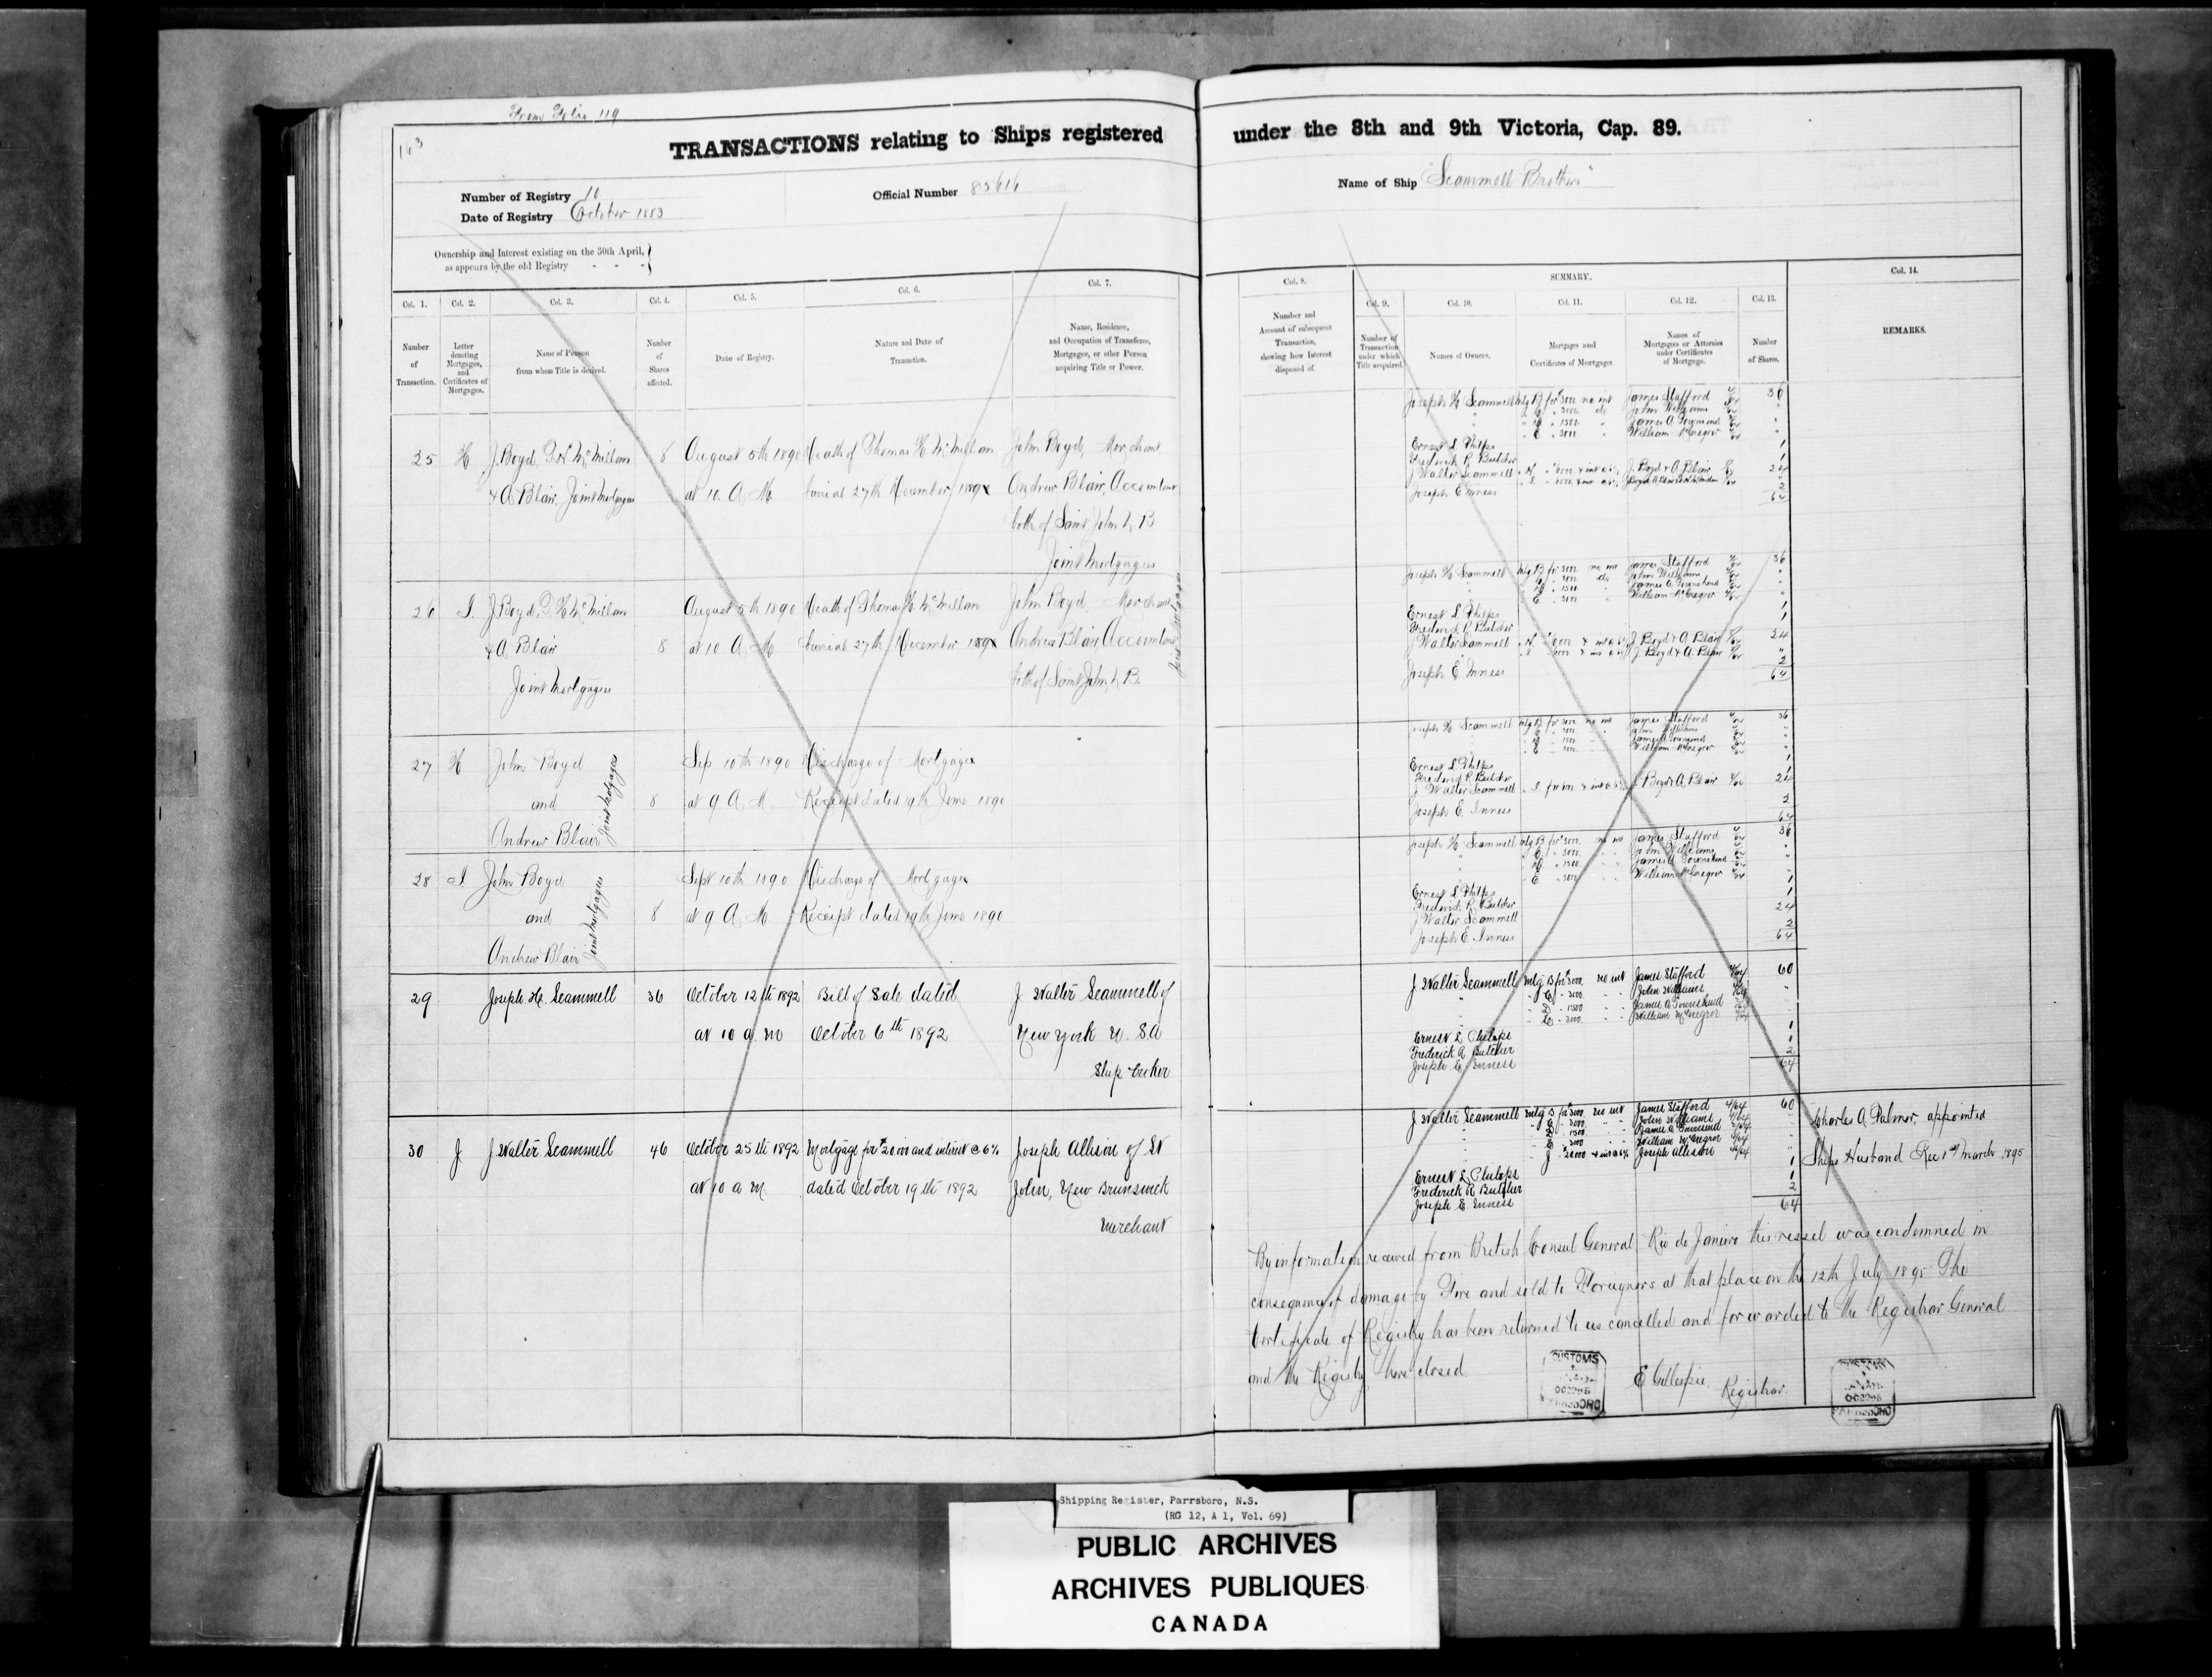 From Folio 119
163
TRANSACTIONS relating to Ships registered under the 8th and 9th Victoria, Cap. 89.
Number of Registry 10
Official Number 85616
Name of Ship "Scammell Brothers"
Date of Registry October 1883
Ownership and Interest existing on the 30th April,
as appears by the old Registry - - -
Col. 1. Number of Transaction.
Col. 2. Letter denoting Mortgages, and Certificates of Mortgages.
Col. 3. Name of Person from whom Title is derived.
Col. 4. Number of Shares affected.
Col. 5. Date of Registry.
Col. 6. Nature and Date of Transaction.
Col. 7. Name, Residence, and Occupation of Transferee, Mortgagee, or other Person acquiring Title or Power.
Col. 8. Number and Account of subsequent Transaction, showing how Interest disposed of.
SUMMARY.
Col. 9. Number of Transaction under which Title acquired.
Col. 10. Names of Owners.
Col. 11. Mortgages and Certificates of Mortgages.
Col. 12. Names of Mortgagees or Attornies under Certificates of Mortgage.
Col. 13. Number of Shares.
Col. 14. REMARKS.
25 H J. Boyd, T H McMillan 8 August 5th 1890 Death of Thomas H McMillan John Boyd, Merchant
& A Blair, Joint Mortgagees at 10. A. M. burial 27th November 189x Andrew Blair, Accountant
both of Saint John N B
Joint Mortgagees
Joseph H Scammell Mtg B for 3000 no int James Stafford 36
C " 3000 do John Williams "
D " 1500 " James A Townshend "
E " 3000 " William McGregor "
Ernest L Phelps 1
Frederick R Butcher 1
J Walter Scammell J. Boyd & A. Blair 24
Joseph E Inness 2
64
26 I. J. Boyd, T. H. McMillan August 5th 1890 Death of Thomas H. McMillan John Boyd, Merchant
& A Blair 8 at 10 A M burial 27th December 189x Andrew Blair, Accountant
Joint Mortgagees both of Saint John, N. B.
Joint Mortgagees
Joseph H Scammell Mtg B for 3000 no int James Stafford 36
C " 3000 do John Williams "
D " 1500 James A Townshend "
E " 3000 William McGregor "
Ernest L Phelps 1
Frederick R Butcher 1
J Walter Scammell J. Boyd & A Blair 24
J. Boyd & A. Blair "
Joseph E Inness 2
64
27 H John Boyd Sep 10th 1890 Discharge of Mortgage
and 8 at 9 A. M. Receipt dated 19th June 1890
Andrew Blair Joint Mortgagees
Joseph H Scammell Mtg B for 3000 no int James Stafford 36
C " 3000 John Williams "
D " 1500 James A Townshend "
E " 3000 William McGregor "
Ernest L Phelps 1
Frederick R Butcher 1
J Walter Scammell J Boyd & A. Blair 24
Joseph E. Inness 2
64
28 I John Boyd Sept 10th 1890 Discharge of Mortgage
and 8 at 9 A. M Receipt dated 19th June 1890
Andrew Blair Joint Mortgagees
Joseph H Scammell Mtg B for 3000 no int James Stafford 36
C " 3000 John Williams "
D " 1500 James A Townshend "
E " 3000 William McGregor "
Ernest L Phelps 1
Frederick R Butcher 1
J Walter Scammell 24
Joseph E. Inness 2
64
29 Joseph H. Scammell 36 October 12th 1892 Bill of Sale dated J Walter Scammell of
at 10 a. m October 6th 1892 New York U. S. A
Ship broker
J Walter Scammell Mtg B for $3000 no int James Stafford 4/64 60
" C " 3000 " John Williams "
" D " 1500 " James A Townshend "
" E " 3000 " William McGregor "
Ernest L Phelps 1
Frederick R Butcher 1
Joseph E Inness 2
64
30 J J Walter Scammell 46 October 25th 1892 Mortgage for $20000 and interest @ 6% Joseph Allison of St
at 10 a m. dated October 19th 1892 John, New Brunswick
Merchant
J Walter Scammell Mtg B for $3000 no int James Stafford 4/64 60
C " 3000 " John Williams
D " 1500 " James A Townshend
E " 3000 " William McGregor
J " 20000 & int @ 6% Joseph Allison
Ernest L Phelps 1
Frederick R Butcher 1
Joseph E. Inness 2
64
Charles A. Palmer, appointed
Ships Husband Rec 1st March 1895
By information received from British Consul General, Rio de Janiero this vessel was condemned in
consequence of damage by Fire and sold to Foreigners at that place on the 12th July 1895 The
Certificate of Registry has been returned to us cancelled and forwarded to the Registrar General
and the Registry here closed.
E Gillespie Registrar
CUSTOMS
PARRSBORO
Shipping Register, Parrsboro, N.S.
(RG 12, A 1, Vol. 69)
PUBLIC ARCHIVES
ARCHIVES PUBLIQUES
CANADA